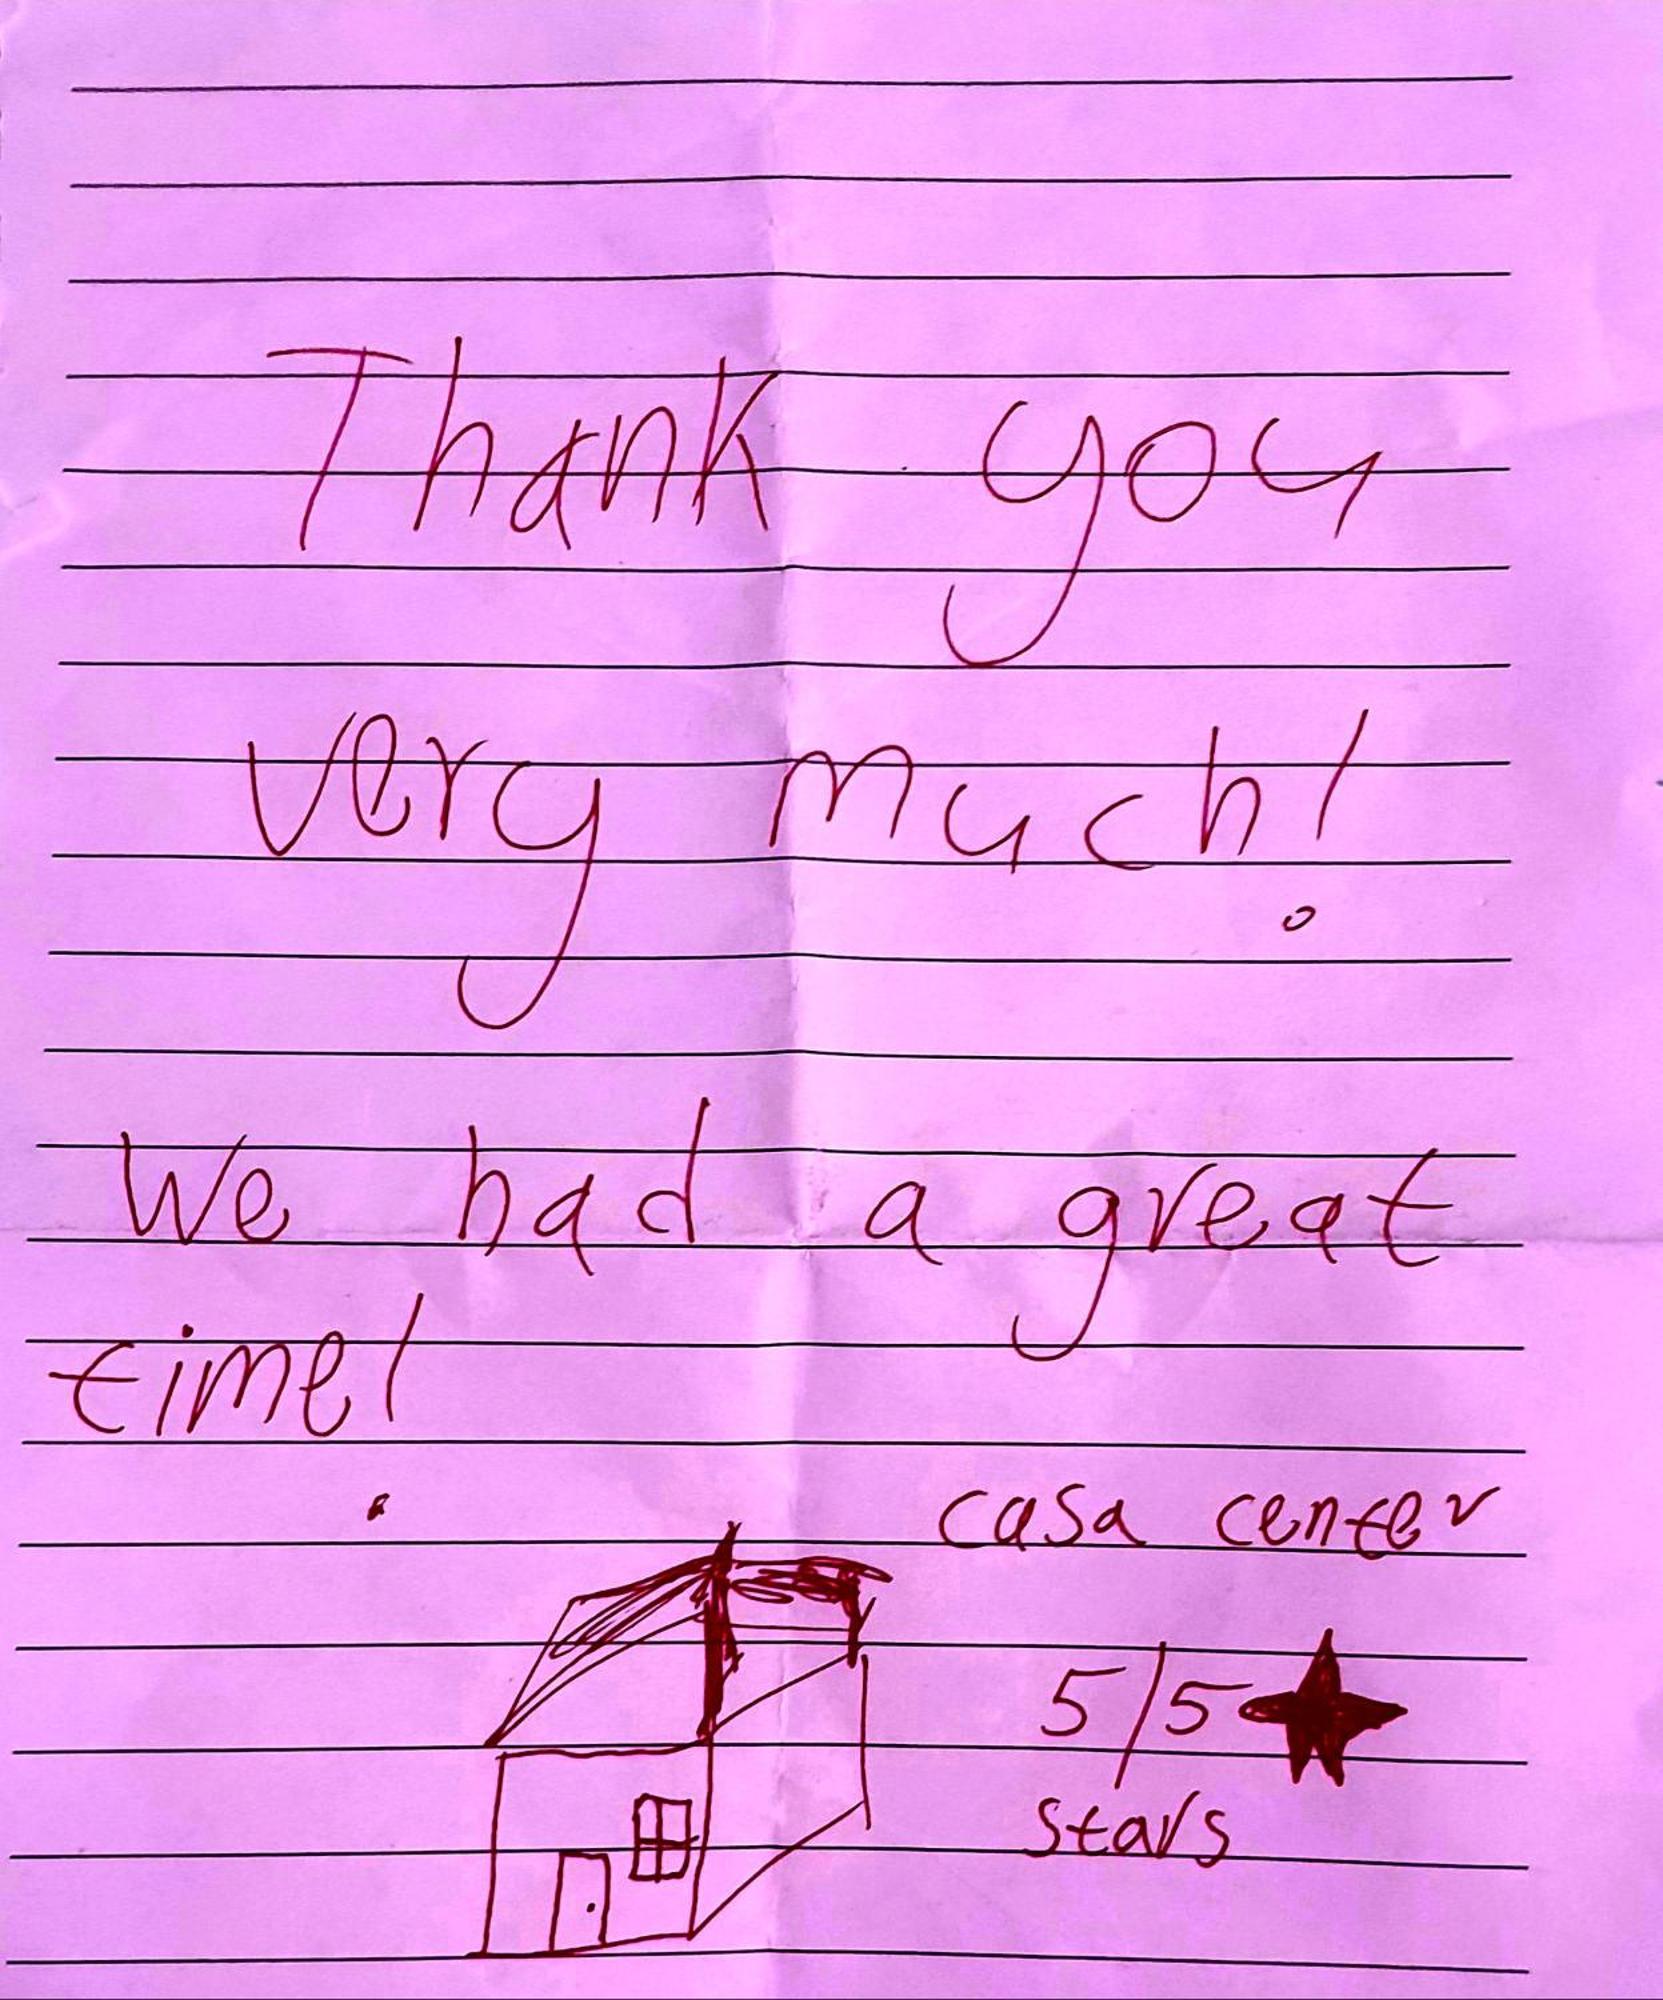 Thank you
very much!
We had a great
time!
casa center
5/5 ★
stars